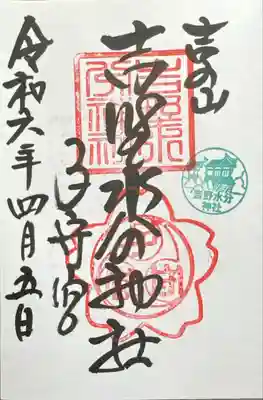 吉野山
吉野水分神社
子守宮
令和六年四月五日
吉野水分
神社